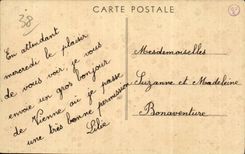 CARTE POSTALE
38
En attendant
mercredi le plaisir
de vous voir, je vous
envoie un gros bonjour
de Vienne où je passe
une très bonne permission
Mesdemoiselles
Suzanne et Madeleine
Bonaventure